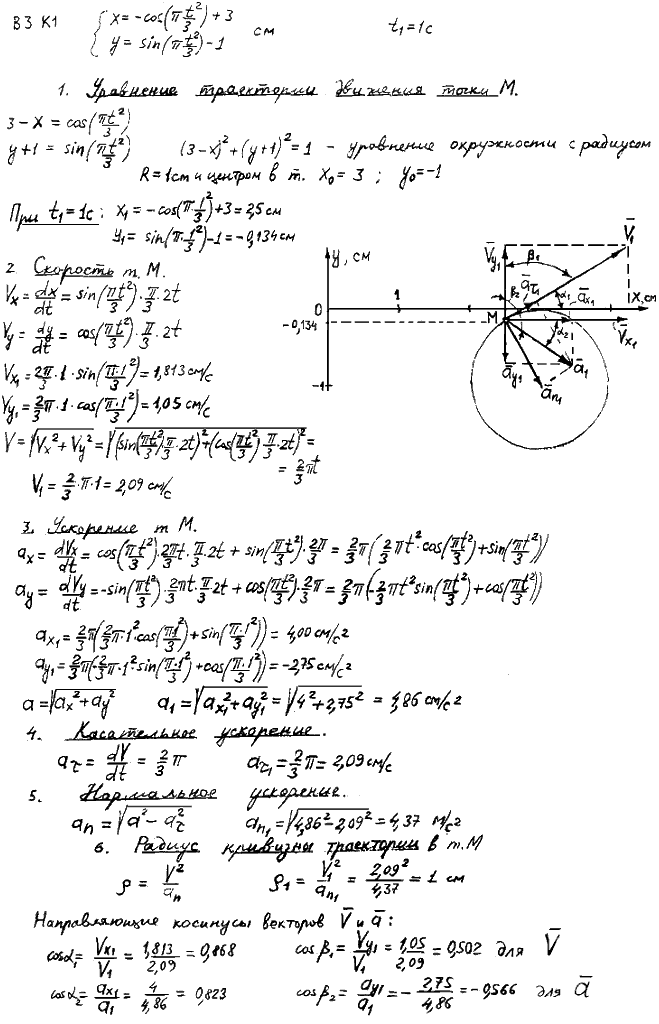 В3 К1 { x = -cos(πt²/3) + 3 см t₁=1с
y = sin(πt²/3) - 1
1. Уравнение траектории движения точки М.
3 - x = cos(πt²/3)
y + 1 = sin(πt²/3) (3-x)² + (y+1)² = 1 - уравнение окружности с радиусом
R = 1cm и центром в т. x₀ = 3 ; y₀ = -1
При t₁ = 1с : x₁ = -cos(π·1²/3) + 3 = 2,5 см
y₁ = sin(π·1²/3) - 1 = -0,134 см
2. Скорость т. М.
Vx = dx/dt = sin(πt²/3)·π/3·2t
Vy = dy/dt = cos(πt²/3)·π/3·2t
Vx₁ = 2π/3·1·sin(π·1²/3) = 1,813 см/с
Vy₁ = 2/3π·1·cos(π·1²/3) = 1,05 см/с
V = √(Vx² + Vy²) = √((sin(πt²/3)π/3·2t)² + (cos(πt²/3)·π/3·2t)²) =
= 2/3πt
V₁ = 2/3·π·1 = 2,09 см/с
y, см
V̄y₁
β₁
V̄₁
āτ₁
β₂
α₁
āx₁
x, см
0
1
М
-0,134
α₂
V̄x₁
āy₁
ā₁
-1
ān₁
3. Ускорение т М.
ax = dVx/dt = cos(πt²/3)·2πt/3·π/3·2t + sin(πt²/3)·2π/3 = 2/3π(2/3πt²·cos(πt²/3) + sin(πt²/3))
ay = dVy/dt = -sin(πt²/3)·2πt/3·π/3·2t + cos(πt²/3)·2π/3 = 2/3π(-2/3πt² sin(πt²/3) + cos(πt²/3))
ax₁ = 2/3π(2/3π·1² cos(π1²/3) + sin(π·1²/3)) = 4,00 см/с²
ay₁ = 2/3π(-2/3π·1² sin(π·1²/3) + cos(π·1²/3)) = -2,75 см/с²
a = √(ax² + ay²) a₁ = √(ax₁² + ay₁²) = √(4² + 2,75²) = 4,86 см/с²
4. Касательное ускорение.
aτ = dV/dt = 2/3 π aτ₁ = 2/3 π = 2,09 см/с
5. Нормальное ускорение.
an = √(a² - aτ²) an₁ = √(4,86² - 2,09²) = 4,37 м/с²
6. Радиус кривизны траектории в т.М
ρ = V²/an ρ₁ = V₁²/an₁ = 2,09²/4,37 = 1 см
Направляющие косинусы векторов V̄ и ā :
cosα₁ = Vx₁/V₁ = 1,813/2,09 = 0,868 cosβ₁ = Vy₁/V₁ = 1,05/2,09 = 0,502 для V̄
cosα₂ = ax₁/a₁ = 4/4,86 = 0,823 cosβ₂ = ay₁/a₁ = - 2,75/4,86 = -0,566 для ā